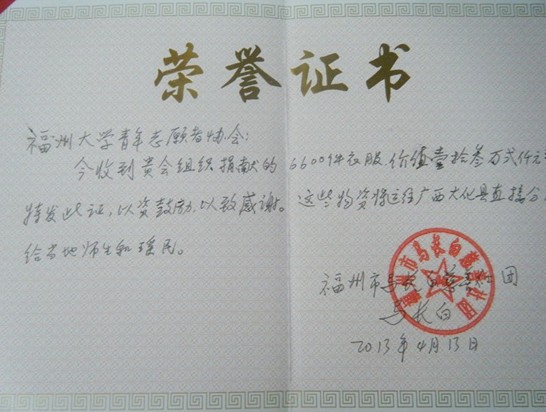 荣誉证书
福州大学青年志愿者协会:
今收到贵会组织捐献的6600件衣服,价值壹拾叁万贰仟元
这些物资将运往广西大化县直接分
给当地师生和瑶民。
特发此证,以资鼓励,以致感谢。
福州市马长白慈善社团
马长白
2013年4月13日